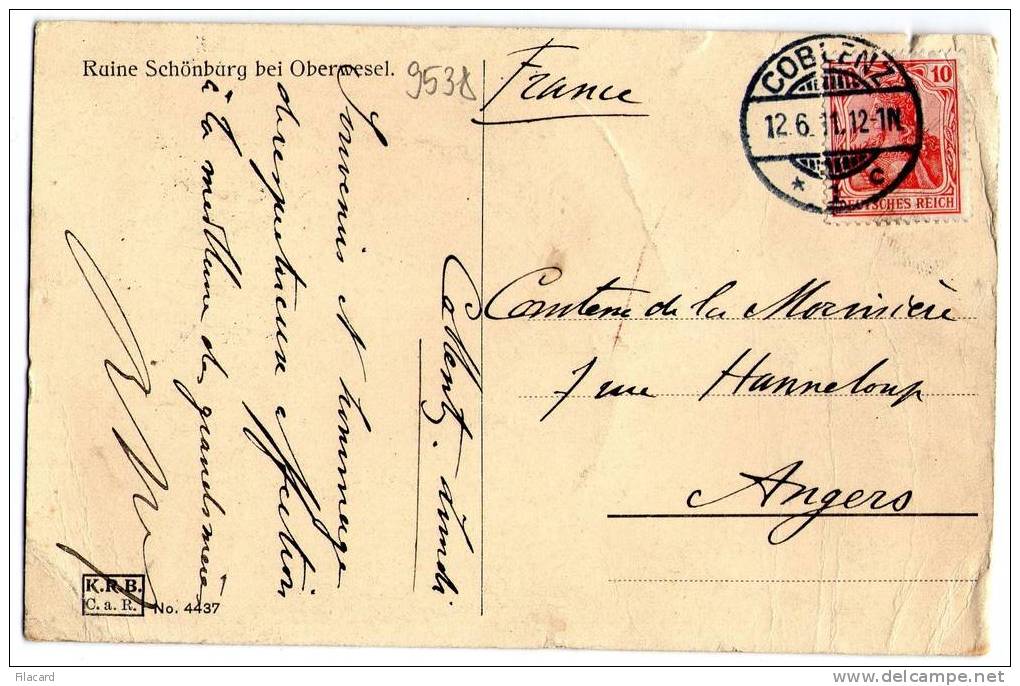 Ruine Schönburg bei Oberwesel.
9538
France
COBLENZ
12.6.11.12-1N.
* 1 c
10
DEUTSCHES REICH
Coblentz. Lundi
Souvenir et hommage
de respectueuse affection
à la meilleure des grands mères
Comtesse de la Morinière
7 rue Hanneloup
Angers
K.R.B.
C.a.R.
No. 4437
Filacard
www.delcampe.net